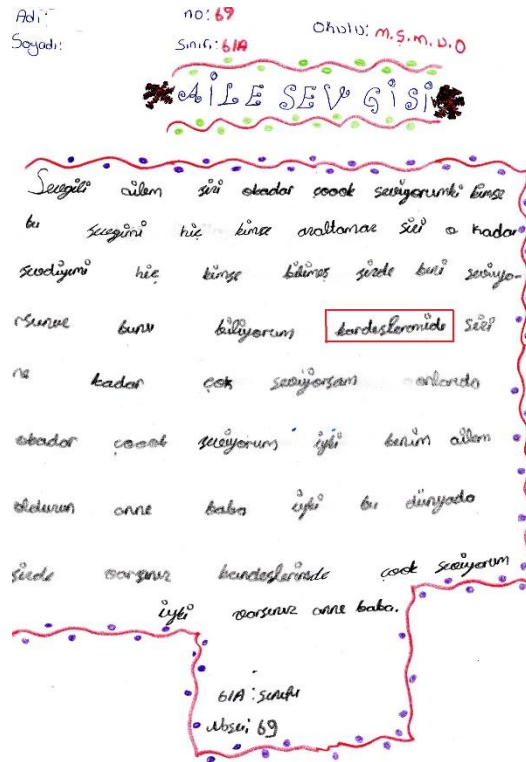 Adı: no: 69 Okulu: M.Ş.M.U.O
Soyadı: Sınıfı: 6/A
AİLE SEVGİSİ
Sevgili ailem sizi okadar çoook seviyorumki kimse
bu sevgimi hiç kimse azaltamaz sizi o kadar
sevdiyimi hiç kimse bilimeş sizde beni seviyo-
rsunuz bunu biliyorum kardeşlerimide sizi
ne kadar çok seviyorsam onlarıda
okadar çoook seviyorum iyki benim ailem
oldunun anne baba iyki bu dünyada
sizde varsınız kardeşlerimde çook seviyorum
iyki varsınız anne baba.
6/A: sınıfı
Nosu: 69